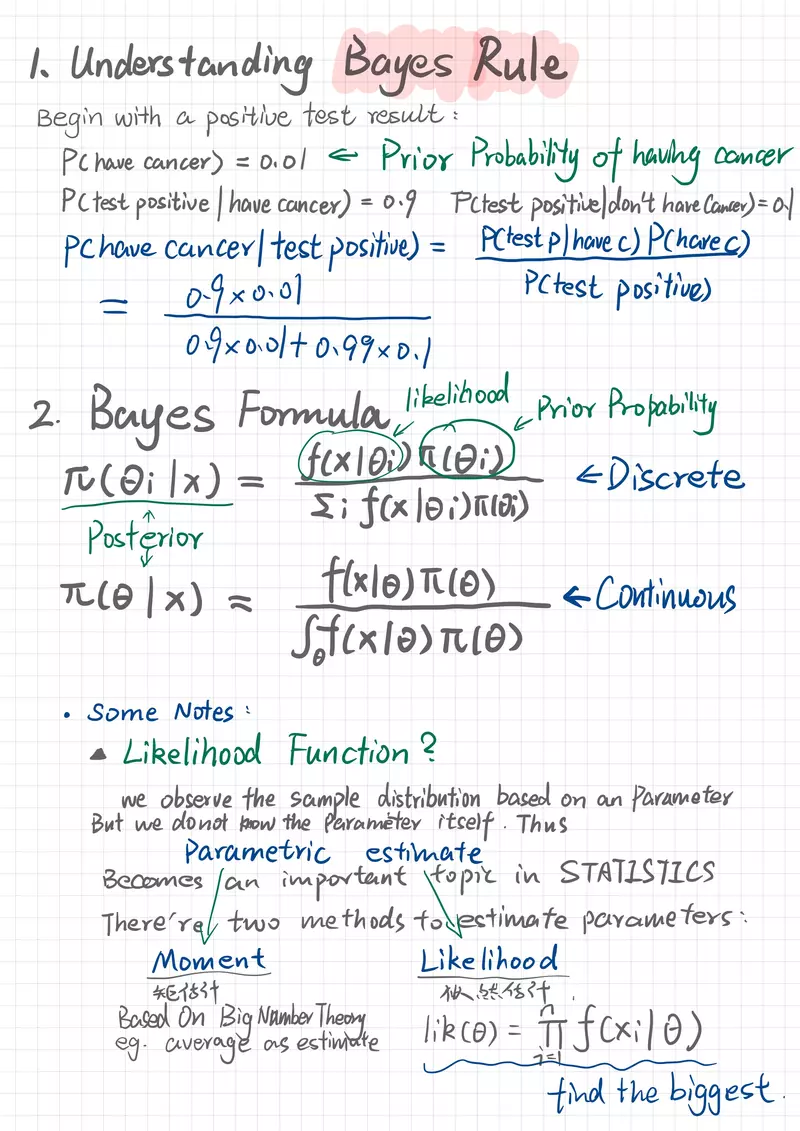 1. Understanding Bayes Rule
Begin with a positive test result:
P(have cancer) = 0.01 ← Prior Probability of having cancer
P(test positive | have cancer) = 0.9 P(test positive|don't have Cancer) = 0.1
P(have cancer | test positive) = P(test p|have c) P(have c)
P(test positive)
= 0.9 × 0.01
0.9 × 0.01 + 0.99 × 0.1
likelihood
2. Bayes Formula ← Prior Propability
π(θi | x) = f(x|θi) π(θi) ← Discrete
Σi f(x|θi) π(θi)
Posterior
π(θ | x) = f(x|θ) π(θ) ← Continuous
∫θ f(x|θ) π(θ)
• Some Notes:
▲ Likelihood Function?
we observe the sample distribution based on an Parameter
But we do not know the Parameter itself. Thus
Parametric estimate
Becomes an important topic in STATISTICS
There're two methods to estimate parameters:
Moment Likelihood
矩估计 似然估计
Based On Big Number Theory
eg. average as estimate
lik(θ) = ∏ⁿi=1 f(xi|θ)
find the biggest.